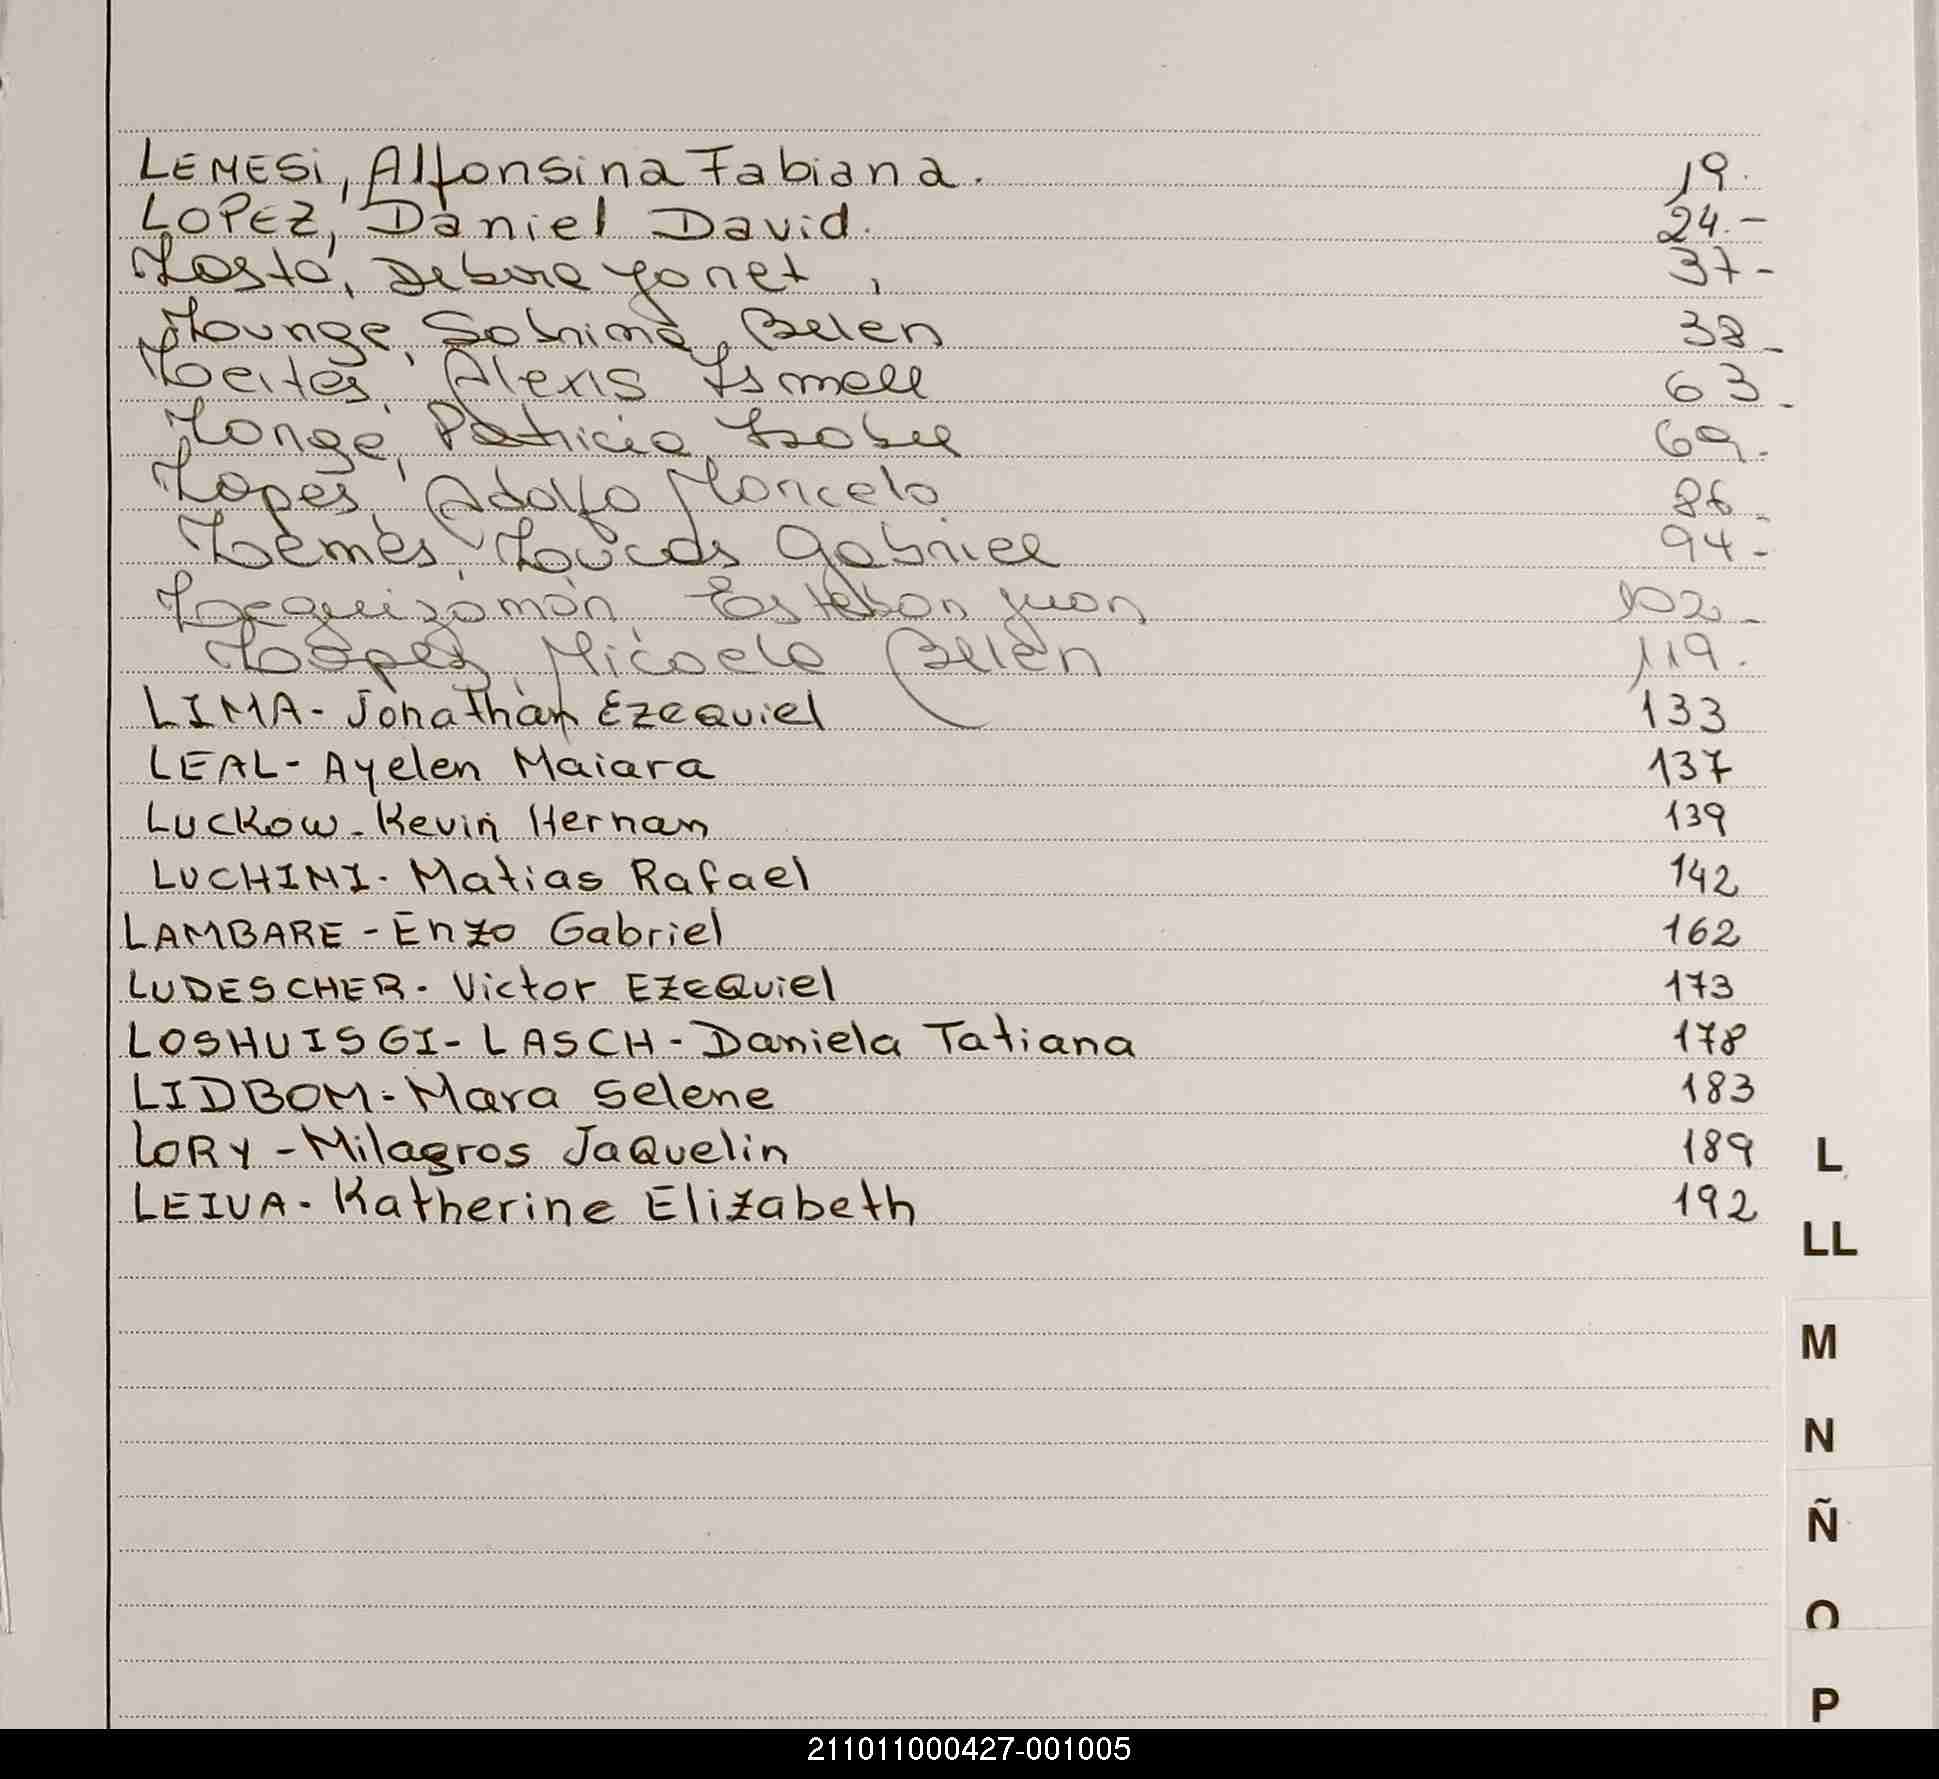 LEMESi, Alfonsina Fabiana. 19.
LOPEZ, Daniel David. 24.-
Losta, Debora Yanet, 37-
Lounge, Sabrina Belen 38-
Leites, Alexis Ismael 63-
Longe, Patricia Isabel 69.
Lopes, Adolfo Marcelo 86-
Lemes, Loucas Gabriel 94-
Leguizamón Esteban Juan 102-
Loopes, Micaela Belén 119.
LIMA- Jonathan Ezequiel 133
LEAL- Ayelen Maiara 137
LUCKOW- Kevin Hernan 139
LUCHINI- Matias Rafael 142
LAMBARE - Enzo Gabriel 162
LUDESCHER- Victor EzeQuiel 173
LOSHUISGI- LASCH- Daniela Tatiana 178
LIDBOM- Mara Selene 183
LORY - Milagros JaQuelin 189
LEIVA- Katherine Elizabeth 192
L
LL
M
N
Ñ
O
P
211011000427-001005